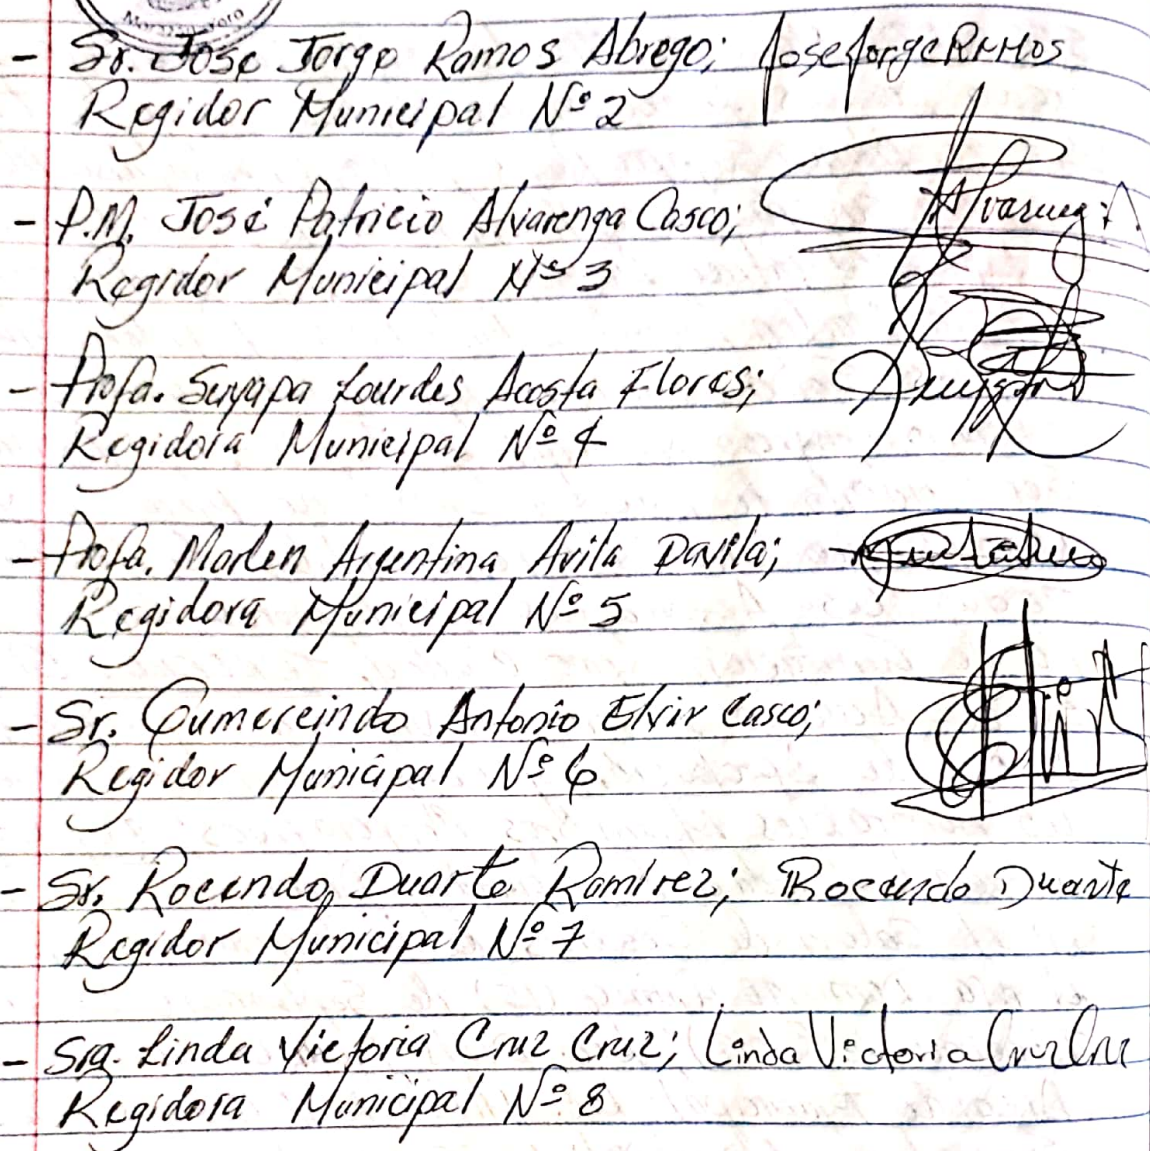 Morazan, Yoro
- Sr. Jose Jorge Ramos Abrego; Jose Jorge Ramos
Regidor Municipal Nº 2
- P.M. José Patricio Alvarenga Casco;
Regidor Municipal Nº 3
- Profa. Suyapa Lourdes Acosta Flores;
Regidora Municipal Nº 4
- Profa. Marlen Argentina Avila Davila;
Regidora Municipal Nº 5
- Sr. Gumercindo Antonio Elvir Casco;
Regidor Municipal Nº 6
- Sr. Rocendo Duarte Ramirez; Rocendo Duarte
Regidor Municipal Nº 7
- Sra. Linda Victoria Cruz Cruz; Linda Victoria Cruz Cruz
Regidora Municipal Nº 8